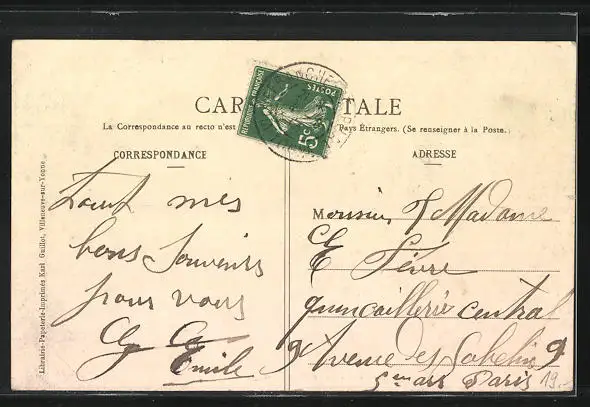 CARTE POSTALE
La Correspondance au recto n'est Pays Étrangers. (Se renseigner à la Poste.
RÉPUBLIQUE FRANÇAISE
POSTES
5c
CORRESPONDANCE
ADRESSE
Librairie-Papeterie-Imprimés Karl Guillot, Villeneuve-sur-Yonne
Tout mes
bons Souvenirs
pour vous
Emile
Monsieur & Madame
E Fèvre
quincaillerie central
9 Avenue des Gobelins 9
5me arr Paris
19.-